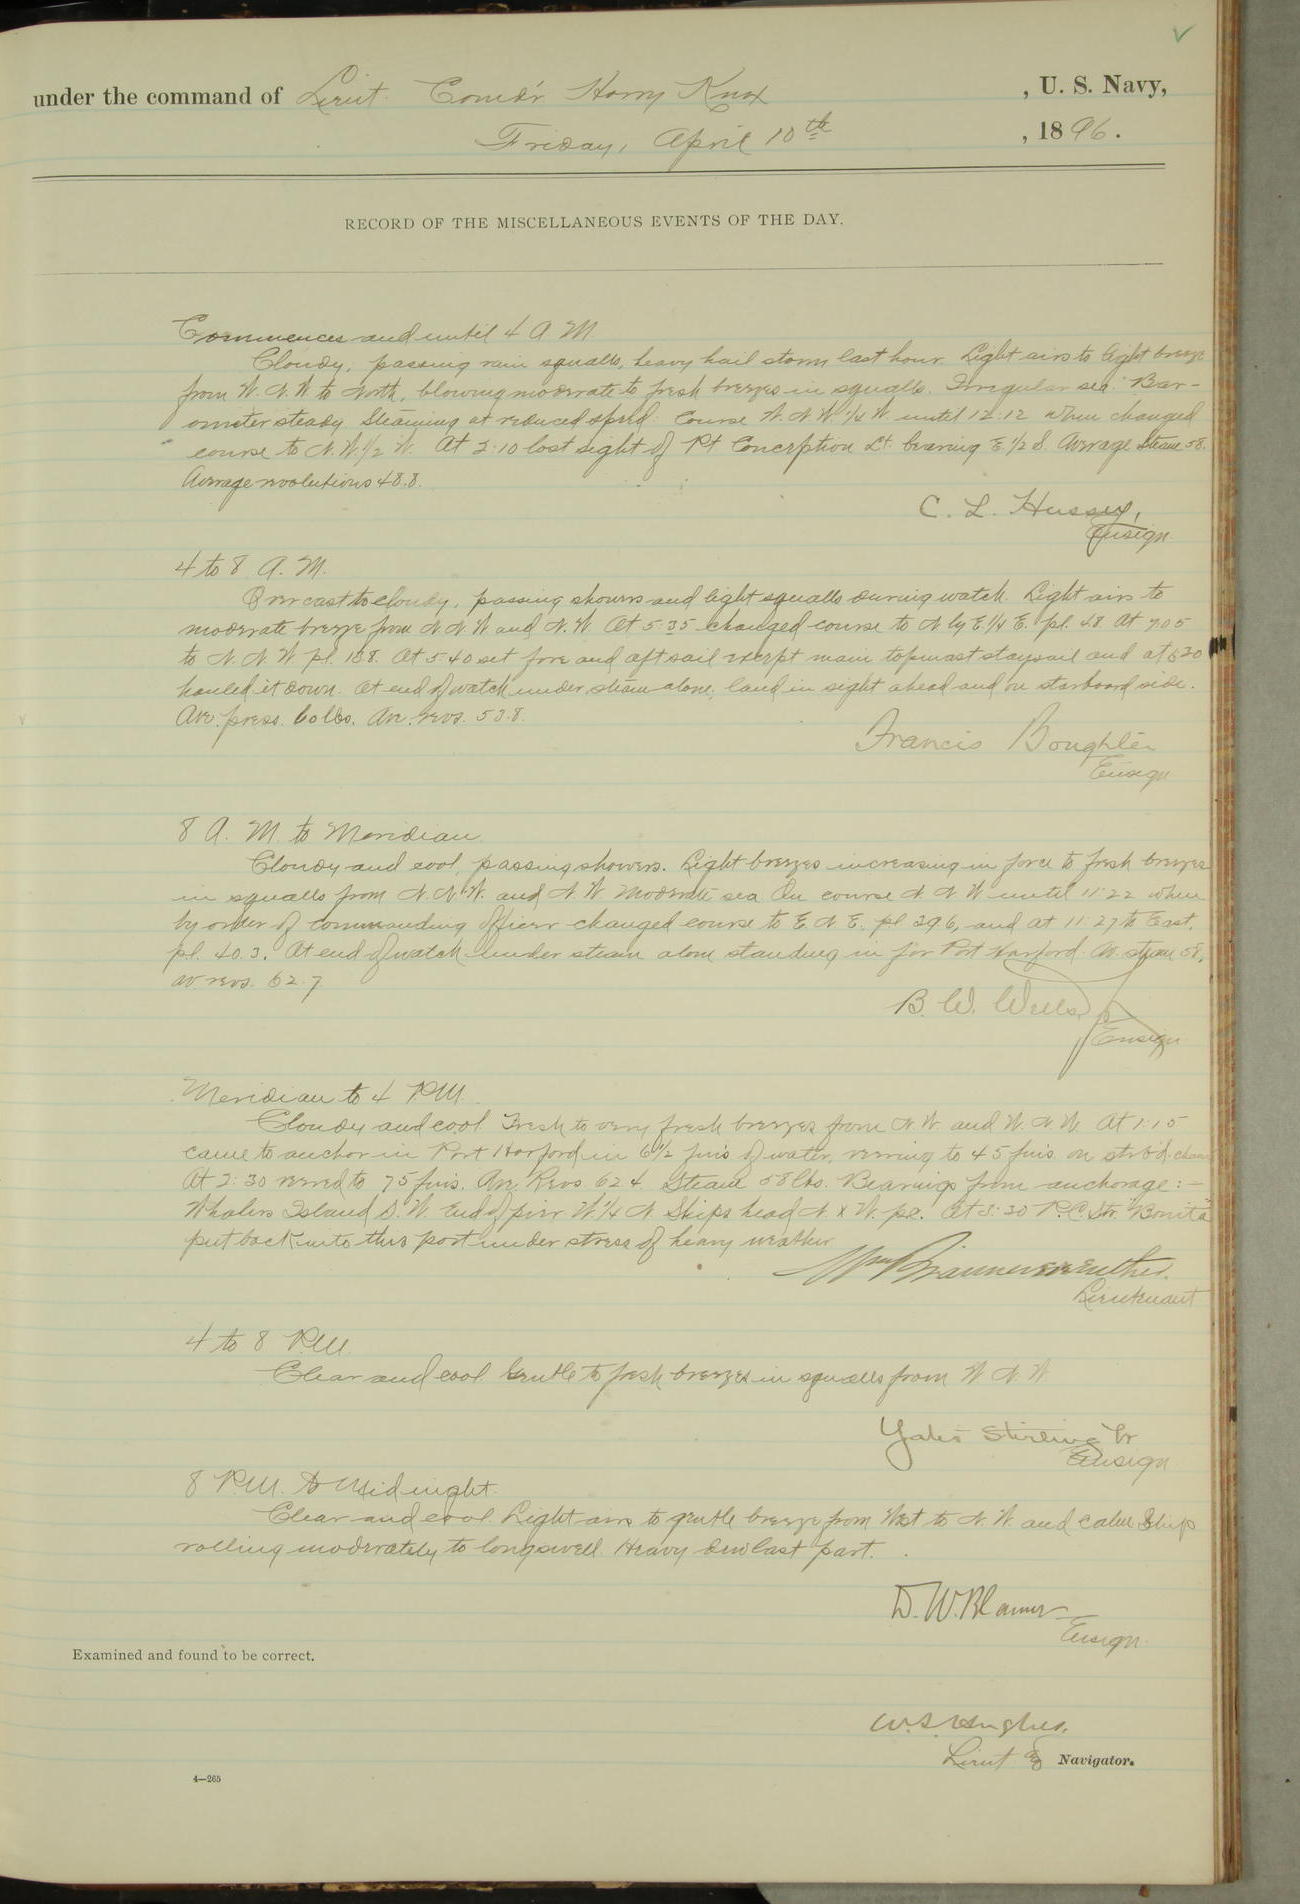 under the command of Lieut. Comd'r Harry Knox , U. S. Navy,
Friday, April 10th , 1896.
RECORD OF THE MISCELLANEOUS EVENTS OF THE DAY.
Commences and until 4 A M.
Cloudy, passing rain squalls, heavy hail storm last hour. Light airs to light breeze
from W. N. W. to North, blowing moderate to fresh breezes in squalls. Irregular sea. Bar-
ometer steady. Steaming at reduced speed. Course W. N. W. 1/4 W. until 12:12 when changed
course to N. W. 1/2 W. At 2:10 lost sight of Pt Conception Lt. bearing E. 1/2 S. Average Steam 58.
Average revolutions 48.8.
C. L. Hussey,
Ensign
4 to 8 A. M.
Overcast to cloudy, passing showers and light squalls during watch. Light airs to
moderate breeze from N N W and N. W. At 5:35 changed course to N by E. 1/4 E. pl. 4.8. At 7.05
to N. N. W. pl. 15.8. At 5.40 set fore and aft sail except main topmast staysail and at
hauled it down. At end of watch under steam alone, land in sight ahead and on starboard side.
Ave. press. 60 lbs. Ave. revs. 53.8.
Francis Boughter
Ensign
8 A. M. to Meridian.
Cloudy and cool, passing showers. Light breezes increasing in force to fresh breezes
in squalls from N. N. W. and N. W. Moderate sea. On course N N W until 11:22 when
by order of commanding officer changed course to E. N. E. pl 39.6, and at 11:27 to East.
pl. 40.3. At end of watch under steam alone standing in for Port Harford. Av. steam 58,
av revs. 62.7
B. W. Wells Jr
Ensign
Meridian to 4 P.M.
Cloudy and cool. Fresh to very fresh breezes from N. W. and W. N. W. At 1:15
came to anchor in Port Harford in 6 1/2 fms of water, veering to 45 fms. on stb'd. chain
At 2:30 veered to 75 fms. Ave. Revs. 62.4. Steam 58 lbs. Bearings from anchorage: —
Whalers Island S. W. End of pier W. 1/4 N. Ships head N. x W. p.c. At 3:30 P.C. Str. "Bonita"
put back into this port under stress of heavy weather.
Wm Braunersreuther.
Lieutenant
4 to 8 P.M.
Clear and cool. Gentle to fresh breezes in squalls from W. N. W
Yates Stirling Jr
Ensign
8 P.M. to Midnight.
Clear and cool. Light airs to gentle breeze from West to N. W. and calm. Ship
rolling moderately to long swell. Heavy dew last part.
D. W. Blamer
Ensign.
Examined and found to be correct.
W. S. Hughes.
Lieut & Navigator.
4—265